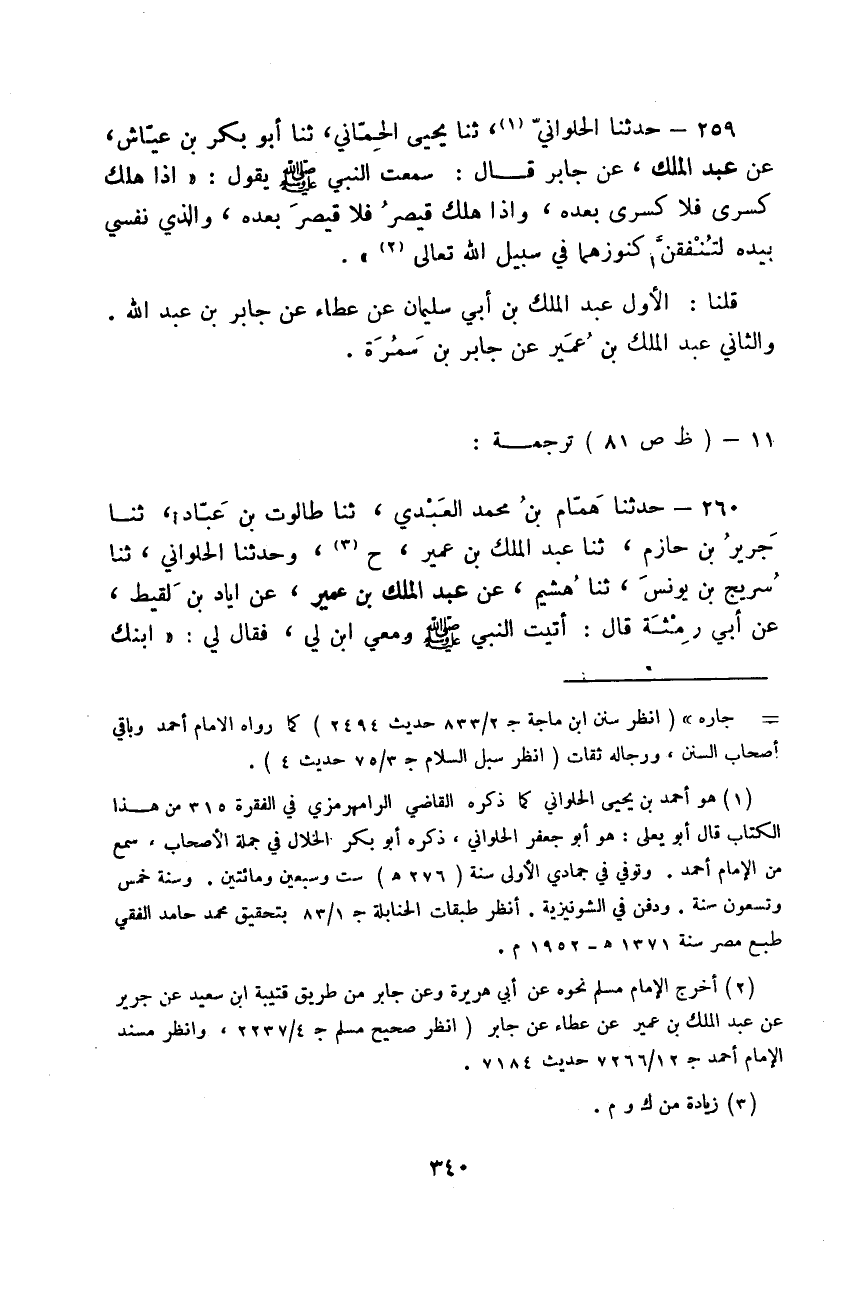 ٢٥٩ – حدثنا الحلوانيّ (١)، ثنا يحيى الحِمّاني، ثنا أبو بكر بن عيّاش،
عن عبد الملك ، عن جابر قـــال : سمعت النبي ﷺ يقول : « اذا هلك
كسرى فلا كسرى بعده ، واذا هلك قيصرُ فلا قيصرَ بعده ، والذي نفسي
بيده لتُنْفقنَّ كنوزهما في سبيل الله تعالى (٢) » .
قلنا : الأول عبد الملك بن أبي سليمان عن عطاء عن جابر بن عبد الله .
والثاني عبد الملك بن عُمَير عن جابر بن سَمُرَة .
١١ – ( ظ ص ٨١ ) ترجمـــة :
٢٦٠ – حدثنا هَمّام بنُ محمد العَبْدي ، ثنا طالوت بن عَبّاد ، ثنــا
جَريرُ بن حازم ، ثنا عبد الملك بن عمير ، ح (٣) ، وحدثنا الحلواني ، ثنا
سُريج بن يونسَ ، ثنا هُشيم ، عن عبد الملك بن عمير ، عن اياد بن لَقيط ،
عن أبي رِمْثَـة قال : أتيت النبي ﷺ ومعي ابن لي ، فقال لي : « ابنك
= جاره » ( انظر سنن ابن ماجة جـ ٨٣٣/٢ حديث ٢٤٩٤ ) كما رواه الامام أحمد وباقي
أصحاب السنن ، ورجاله ثقات ( انظر سبل السلام جـ ٧٥/٣ حديث ٤ ) .
(١) هو أحمد بن يحيى الحلواني كما ذكره القاضي الرامهرمزي في الفقرة ٣١٥ من هـــذا
الكتاب قال أبو يعلى : هو أبو جعفر الحلواني ، ذكره أبو بكر الخلال في جملة الأصحاب ، سمع
من الإمام أحمد . وتوفي في جمادي الأولى سنة ( ٢٧٦ هـ ) ست وسبعين ومائتين . وسنة خمس
وتسعون سنة . ودفن في الشونيزية . أنظر طبقات الحنابلة جـ ٨٣/١ بتحقيق محمد حامد الفقي
طبع مصر سنة ١٣٧١ هـ – ١٩٥٢ م .
(٢) أخرج الإمام مسلم نحوه عن أبي هريرة وعن جابر من طريق قتيبة ابن سعيد عن جرير
عن عبد الملك بن عمير عن عطاء عن جابر ( انظر صحيح مسلم جـ ٢٢٣٧/٤ ، وانظر مسند
الإمام أحمد جـ ٧٢٦٦/١٢ حديث ٧١٨٤ .
(٣) زيادة من ك و م .
٣٤٠